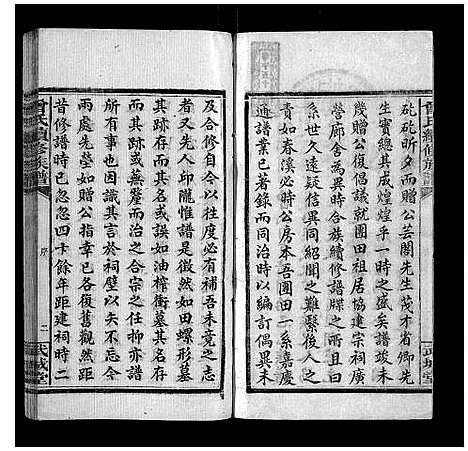 矻矻昕夕而贈公芸閣先生茂才省卿先
生實總其成煌煌乎一時之盛矣譜竣未
幾贈公復倡議就團田祖居協建宗祠廣
營廊舍為異時合族續修譜牒之所且曰
系世久遠疑信異同紹聞之難繫後人之
責如春溪必時公房本吾團田一系嘉慶
通譜業已著錄而同治時以編訂偶異未
曾氏續修族譜
武城堂
及合修自今以往度必有補吾未竟之志
者又先人邱隴惟譜是徵然如田螺形墓
其跡存而其名或誤如油榨衝墓其名存
而其跡或蕪釐而治之合宗之任抑亦譜
所有事也因識其言於祠壁以矢不忘今
兩處先塋如贈公指幸已各復舊觀然距
昔修譜時已忽忽四十餘年距建祠時二
曾氏續修族譜
序
二
武城堂